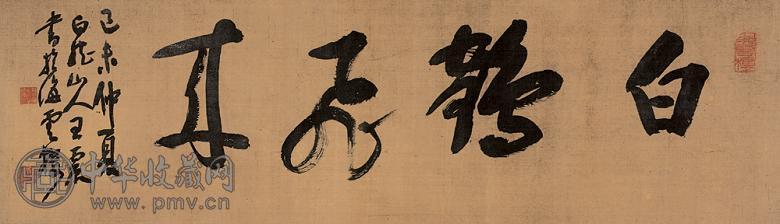 白鶴飛來
己未仲夏
白龍山人王震
書於海雲樓
中华收藏网
www.pmv.cn